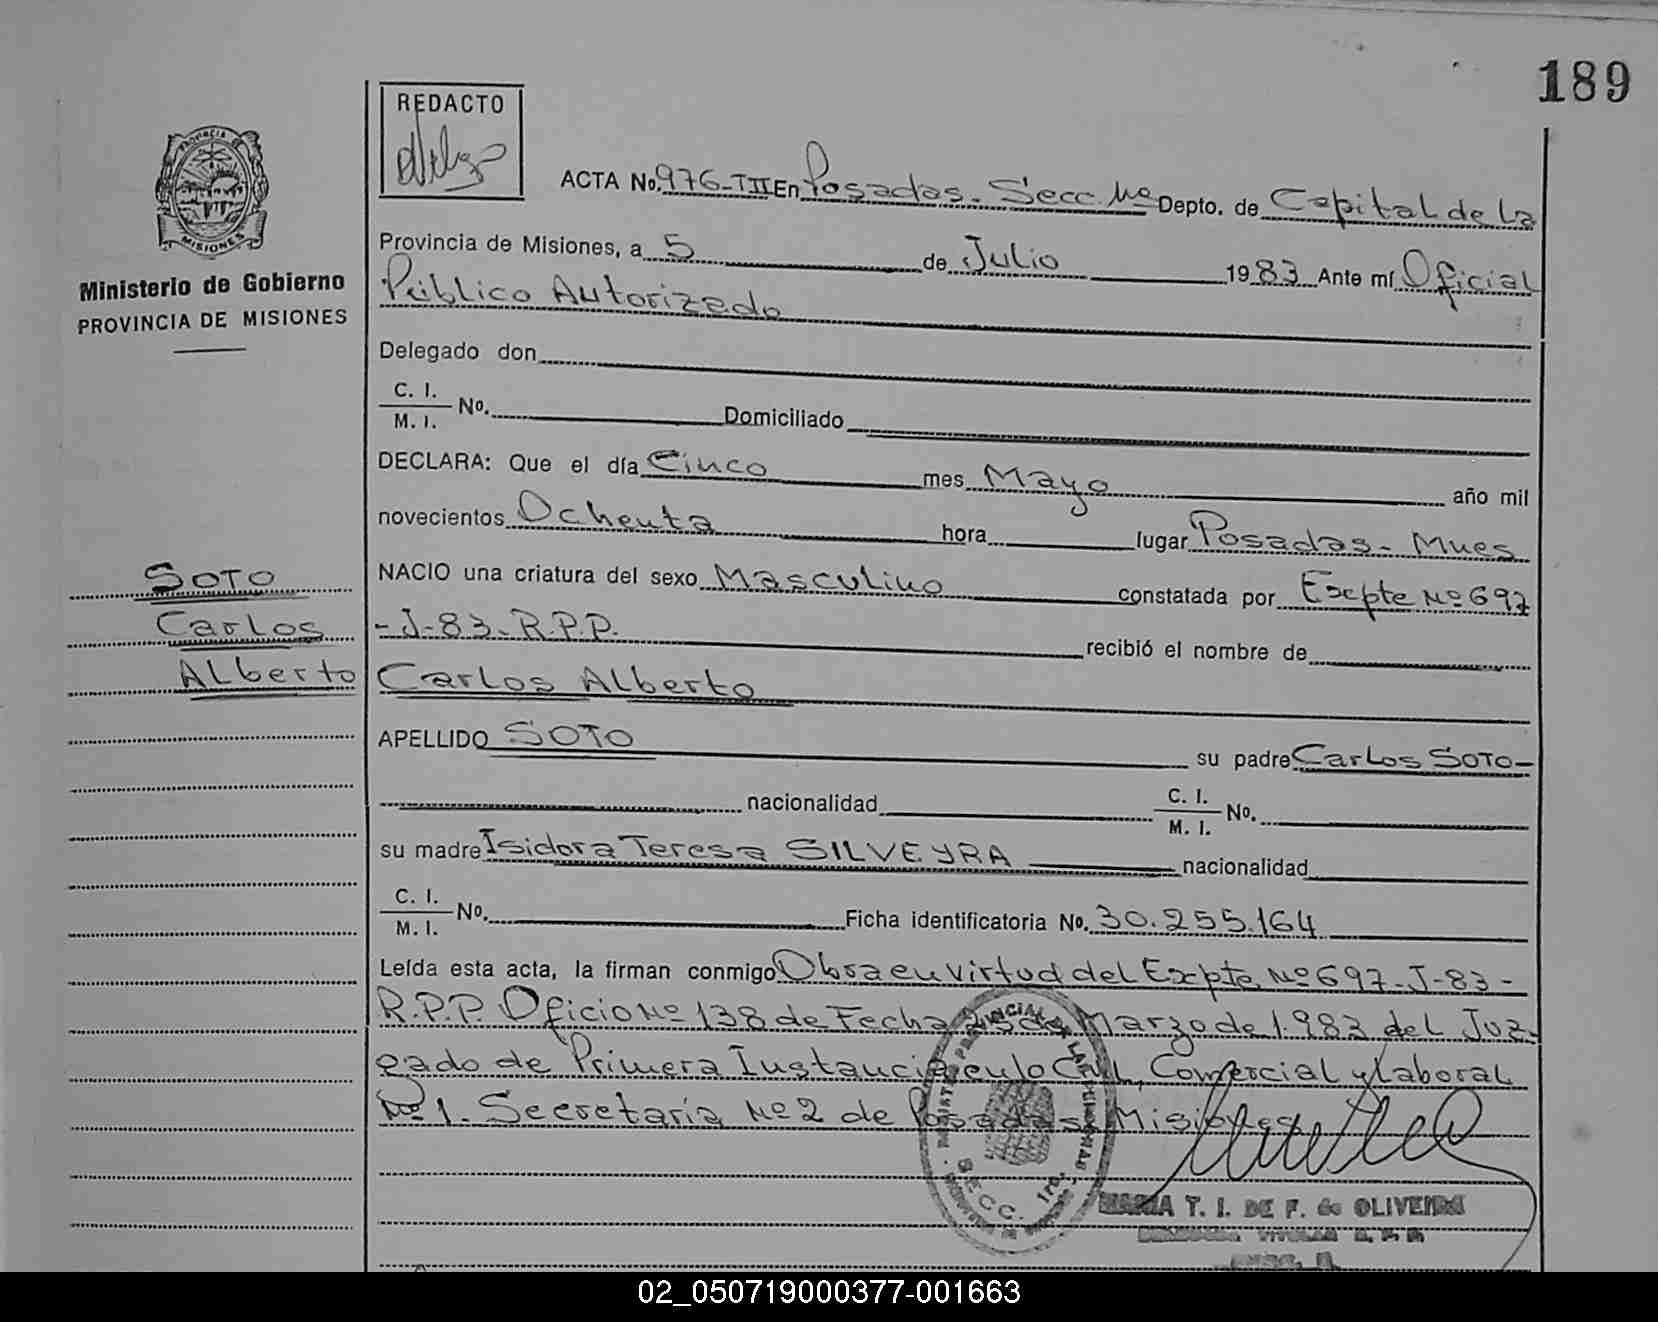 189
REDACTO
PROVINCIA DE
MISIONES
Ministerio de Gobierno
PROVINCIA DE MISIONES
ACTA No. 976-TII En Posadas. Secc. Nº Depto. de Capital de la
Provincia de Misiones, a 5 de Julio 1983 Ante mí Oficial
Público Autorizado
Delegado don
C. I.
M. I. No. Domiciliado
DECLARA: Que el día Cinco mes Mayo año mil
novecientos Ochenta hora lugar Posadas- Mnes
NACIO una criatura del sexo Masculino constatada por Excpte Nº 697
-J-83-R.P.P. recibió el nombre de
Carlos Alberto
APELLIDO SOTO su padre Carlos SOTO-
nacionalidad C. I.
M. I. No.
su madre Isidora Teresa SILVEYRA nacionalidad
C. I.
M. I. No. Ficha identificatoria No. 30.255.164
Leída esta acta, la firman conmigo Obra en virtud del Excpte Nº 697-J-83-
R.P.P. Oficio Nº 138 de Fecha de Marzo de 1.983 del Juz-
gado de Primera Instancia en lo Civil, Comercial y Laboral
Nº 1. Secretaría Nº 2 de Posadas Misiones
SOTO
Carlos
Alberto
SECC. 1ra.
MARIA T. I. DE F. de OLIVEIRA
02_050719000377-001663